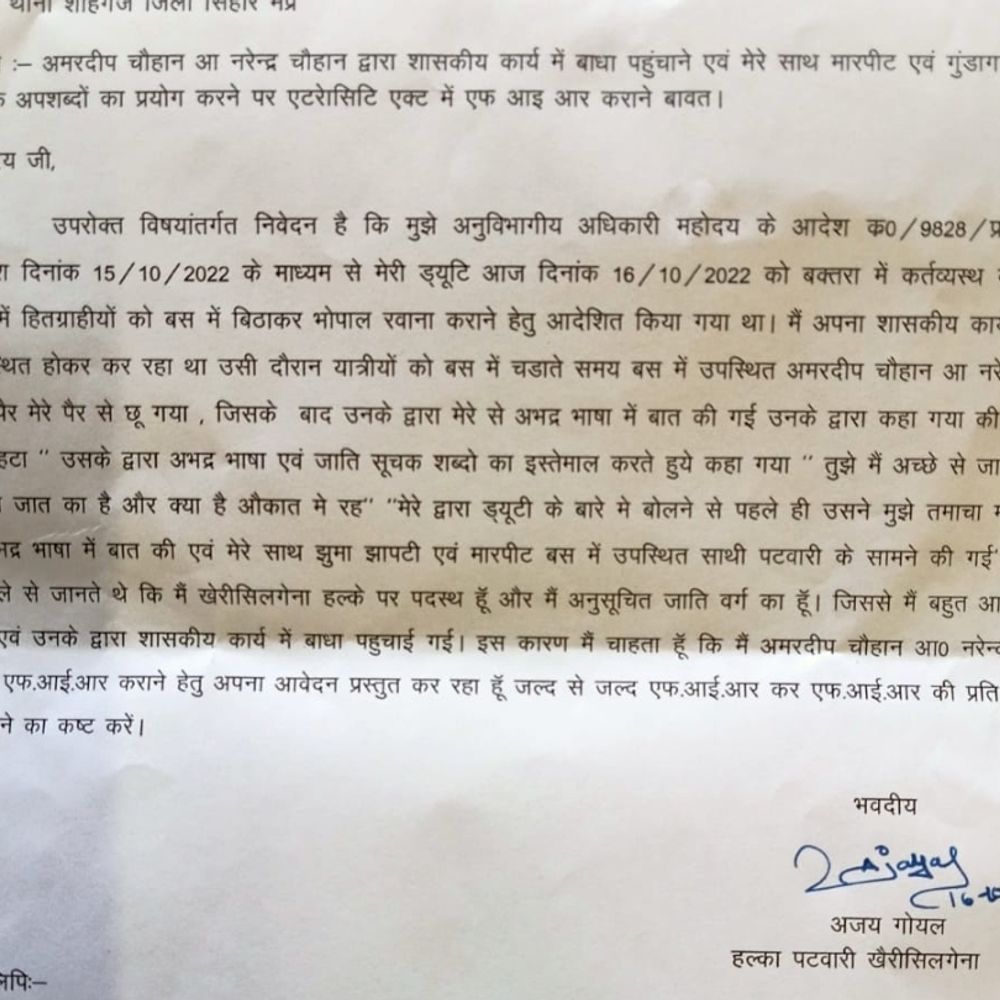 थाना शाहगंज जिला सिहोर मप्र
:– अमरदीप चौहान आ नरेन्द्र चौहान द्वारा शासकीय कार्य में बाधा पहुंचाने एवं मेरे साथ मारपीट एवं गुंडाग
अपशब्दों का प्रयोग करने पर एटरोसिटि एक्ट में एफ आइ आर कराने बावत।
य जी,
उपरोक्त विषयांतर्गत निवेदन है कि मुझे अनुविभागीय अधिकारी महोदय के आदेश क0/9828/प्र
दिनांक 15/10/2022 के माध्यम से मेरी ड्यूटि आज दिनांक 16/10/2022 को बक्तरा में कर्तव्यस्थ
में हितग्राहीयों को बस में बिठाकर भोपाल रवाना कराने हेतु आदेशित किया गया था। मैं अपना शासकीय का
स्थित होकर कर रहा था उसी दौरान यात्रीयों को बस में चडाते समय बस में उपस्थित अमरदीप चौहान आ नरे
पैर मेरे पैर से छू गया , जिसके बाद उनके द्वारा मेरे से अभद्र भाषा में बात की गई उनके द्वारा कहा गया की
हटा " उसके द्वारा अभद्र भाषा एवं जाति सूचक शब्दो का इस्तेमाल करते हुये कहा गया " तुझे मैं अच्छे से जा
जात का है और क्या है औकात मे रह" "मेरे द्वारा ड्यूटी के बारे मे बोलने से पहले ही उसने मुझे तमाचा
भद्र भाषा में बात की एवं मेरे साथ झुमा झापटी एवं मारपीट बस में उपस्थित साथी पटवारी के सामने की गई"
ले से जानते थे कि मैं खेरीसिलगेना हल्के पर पदस्थ हूॅ और मैं अनुसूचित जाति वर्ग का हूॅ। जिससे मैं बहुत आ
एवं उनके द्वारा शासकीय कार्य में बाधा पहुचाई गई। इस कारण मैं चाहता हूॅ कि मैं अमरदीप चौहान आ0 नरेन्द
एफ.आई.आर कराने हेतु अपना आवेदन प्रस्तुत कर रहा हूॅ जल्द से जल्द एफ.आई.आर कर एफ.आई.आर की प्रति
ने का कष्ट करें।
भवदीय
Ajayal
16-10
अजय गोयल
हल्का पटवारी खैरीसिलगेना
लिपिः–